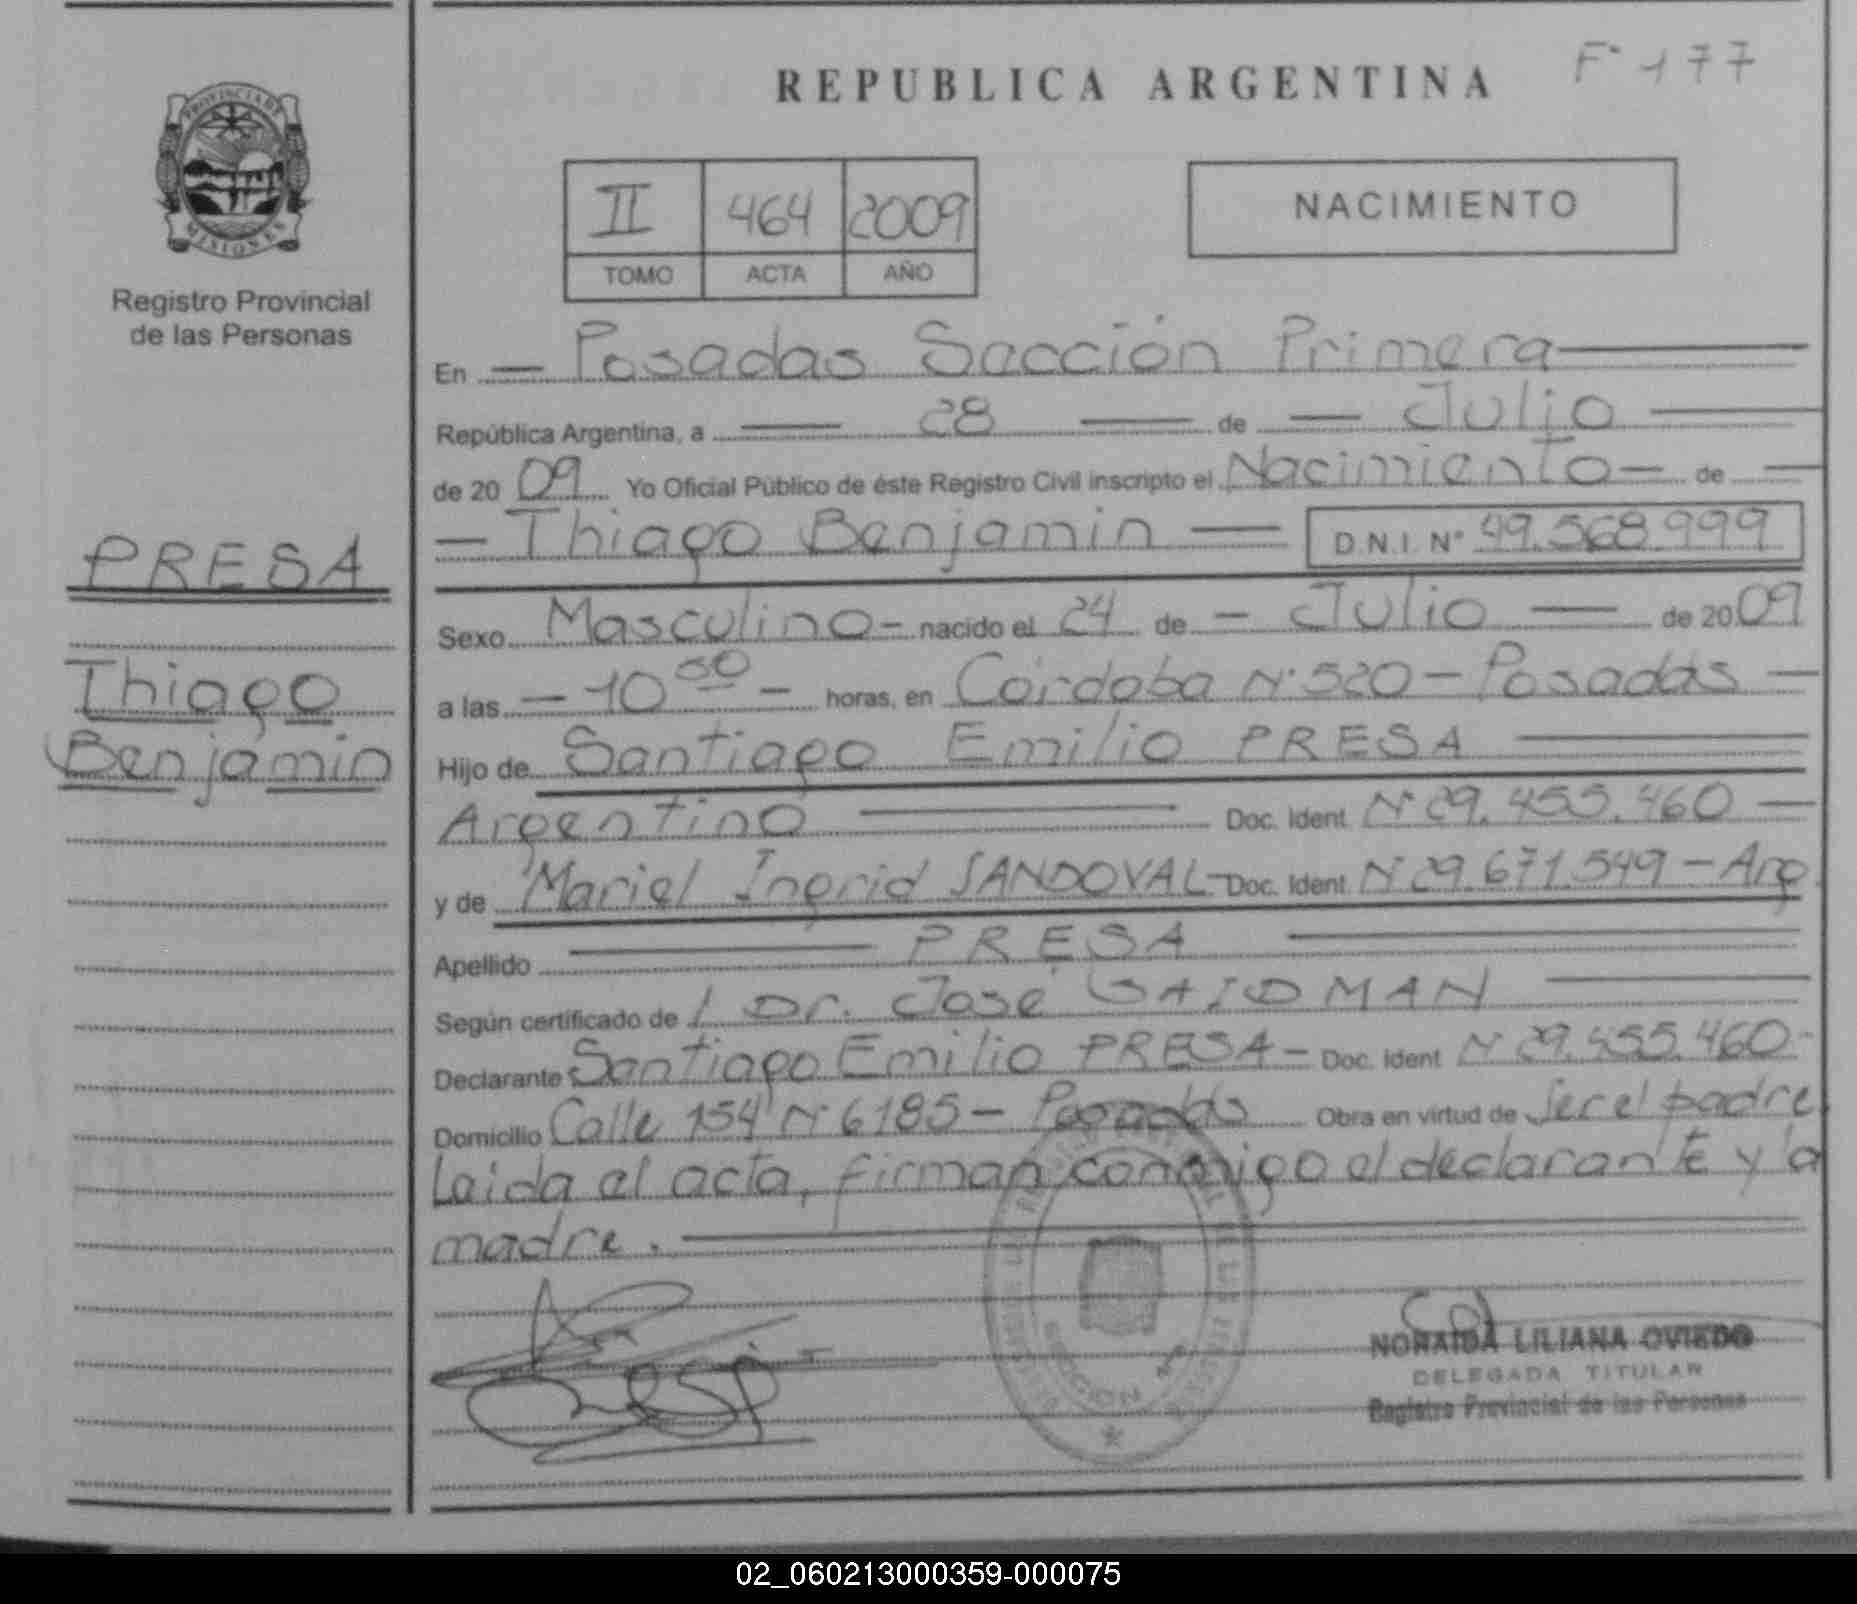 F° 177
REPUBLICA ARGENTINA
PROVINCIA DE
MISIONES
Registro Provincial
de las Personas
II 464 2009
TOMO ACTA AÑO
NACIMIENTO
En Posadas Sección Primera
República Argentina, a 28 de Julio
de 20 09 Yo Oficial Público de éste Registro Civil inscripto el Nacimiento de
Thiago Benjamin D.N.I. N° 49.568.999
PRESA
Thiago
Benjamin
Sexo Masculino nacido el 24 de Julio de 20 09
a las 10 50 horas, en Córdoba N° 520 - Posadas
Hijo de Santiago Emilio PRESA
Argentino Doc. Ident. N° 29.455.460
y de Mariel Ingrid SANDOVAL Doc. Ident. N° 29.671.549 - Arg.
Apellido PRESA
Según certificado de Dr. José SAIDMAN
Declarante Santiago Emilio PRESA - Doc. Ident. N° 29.455.460-
Domicilio Calle 154 N° 6185 - Posadas Obra en virtud de ser el padre.
Leida el acta, firman conmigo el declarante y la
madre.
SECCION 1
NORAIDA LILIANA OVIEDO
DELEGADA TITULAR
Registro Provincial de las Personas
02_060213000359-000075